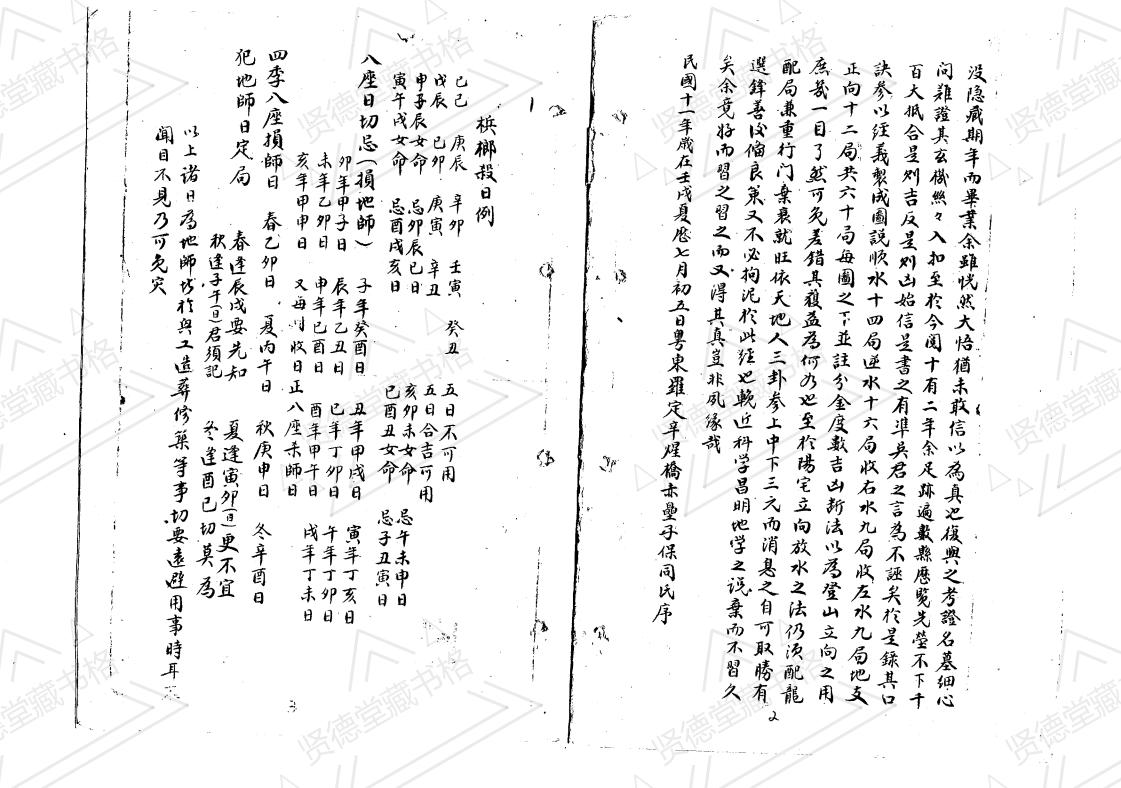 没隐藏期年而畢業余雖恍然大悟猶未敢信以為真也復興之考證名墓細心
问難證其玄機絲々入扣至於今閱十有二年余足跡遍數縣歷覧先塋不下千
百大抵合是则吉反是则凶始信是書之有準吳君之言為不誣矣於是錄其口
訣参以經義製成圖説順水十四局逆水十六局收右水九局收左水九局地支
正向十二局共六十局每圖之下並註分金度數吉凶断法以為登山立向之用
庶幾一目了然可免差錯其獲益為何如也至於陽宅立向放水之法仍须配龍
配局兼重行门棄衰就旺依天地人三卦参上中下三元而消息之自可取勝有
選鋒善後偹良策又不必拘泥於此經也輓近科学昌明地学之说棄而不習久
矣余竟好而習之習之而又得其真豈非夙缘哉
民國十一年歲在壬戌夏歷七月初五日粤東羅定辛 橋赤壘子保同氏序
2
梹榔殺日例
己巳 庚辰 辛卯 壬寅 癸丑 五日不可用
戊辰 己卯 庚寅 辛丑 五日合吉可用
申子辰女命 忌卯辰巳日 亥卯未女命 忌午未申日
寅午戌女命 忌酉戌亥日 巳酉丑女命 忌子丑寅日
八座日切忌(損地師) 子年癸酉日 丑年甲戌日 寅年丁亥日
卯年甲子日 辰年乙丑日 巳年丁卯日 午年丁卯日
未年乙卯日 申年己酉日 酉年甲午日 戌年丁未日
亥年甲申日 又每 收日正八座未師日
四季八座損師日 春乙卯日 夏丙午日 秋庚申日 冬辛酉日
犯地師日定局 春逢辰戌要先知 夏逢寅卯(日)更不宜
秋逢子午(日)君須記 冬逢酉巳切莫為
以上诸日為地師 於與工造葬修築等事切要遠避用事時耳
聞目不見乃可免灾
3
贤德堂藏书格